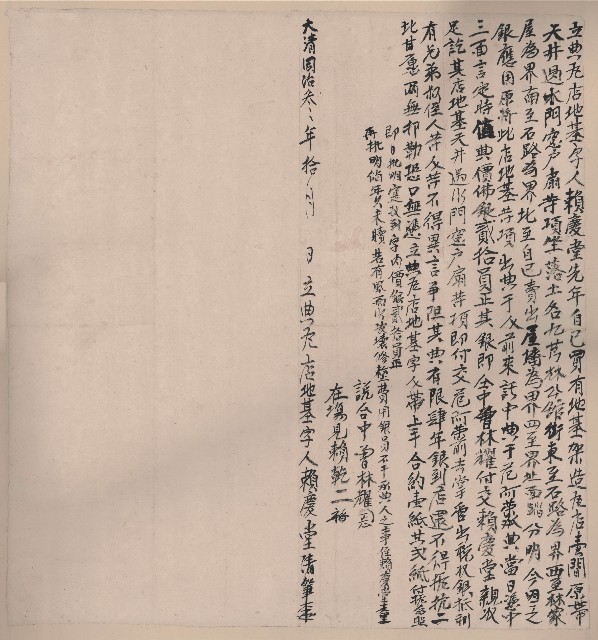 立典尾店地基字人賴慶堂先年自己買有地基架造尾店壹間原帶
天井過水門窓户扇等項坐落土名九芎林公館街東至石路為界西至林家
屋為界南至石路為界北至自己賣出屋墻為界四至界址面踏分明今因乏
銀應用原將此店地基等項出典于人前來託中典于范阿榮承典當日憑中
三面言定時值典價佛銀貳拾員正其銀即仝中曾林耀付交賴慶堂親收
足訖其店地基天井過水門窓户扇等項即付交范阿榮前去掌管出稅收銀抵利
有兄弟叔侄人等人等不得異言爭阻其典有限肆年銀到店還不得抵抗二
比甘愿兩無抑勒恐口無憑立典尾店地基字人帶上手合約壹紙共貳紙付執為照
即日批明寔收到字內價銀貳拾員正
再批明備年久未贖若有風雨以及壞修整費用銀員不干承典人之事係賴慶堂
說合中曾林耀
在塲見賴乾二
大清同治叁年拾月 日立典尾店地基字人賴慶堂請筆